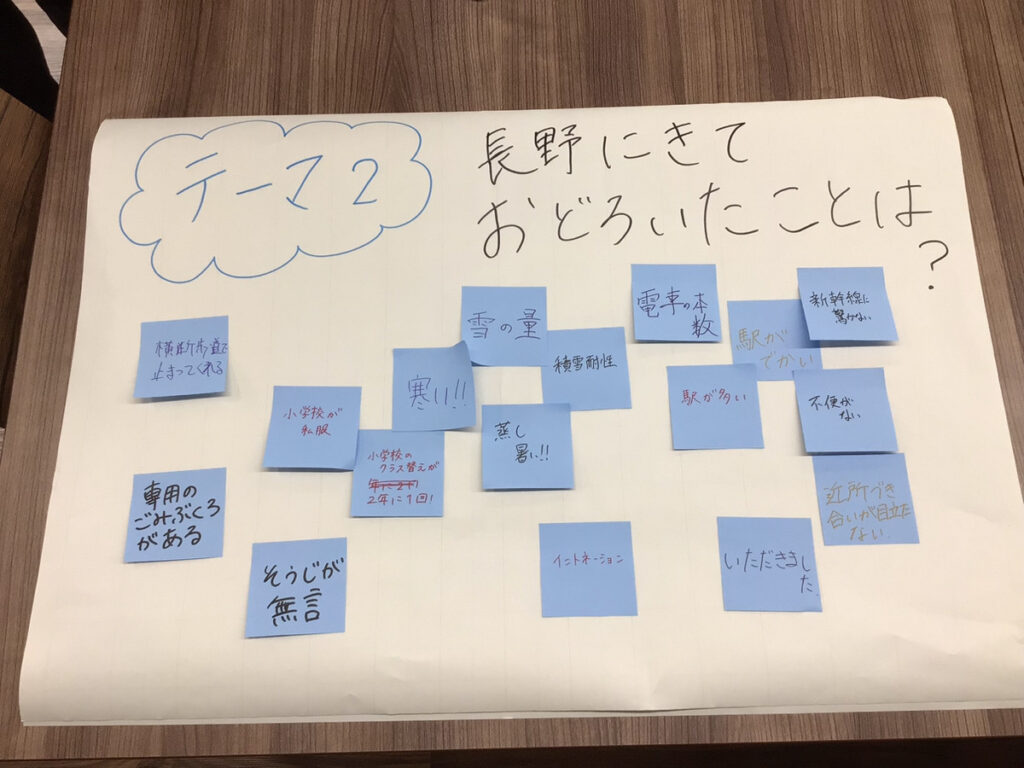 テーマ2
長野にきて
おどろいたことは
?
横断歩道で
止まってくれる
小学校が
私服
小学校の
クラス替えが
2年に1回!
専用の
ごみぶくろ
がある
そうじが
無言
寒い!!
雪の量
積雪耐性
蒸し
暑い!!
電車の本
数
駅が
でかい
新幹線に
驚かない
駅が多い
不便が
ない
近所づき
合いが目立た
ない
イントネーション
いただきまし
た